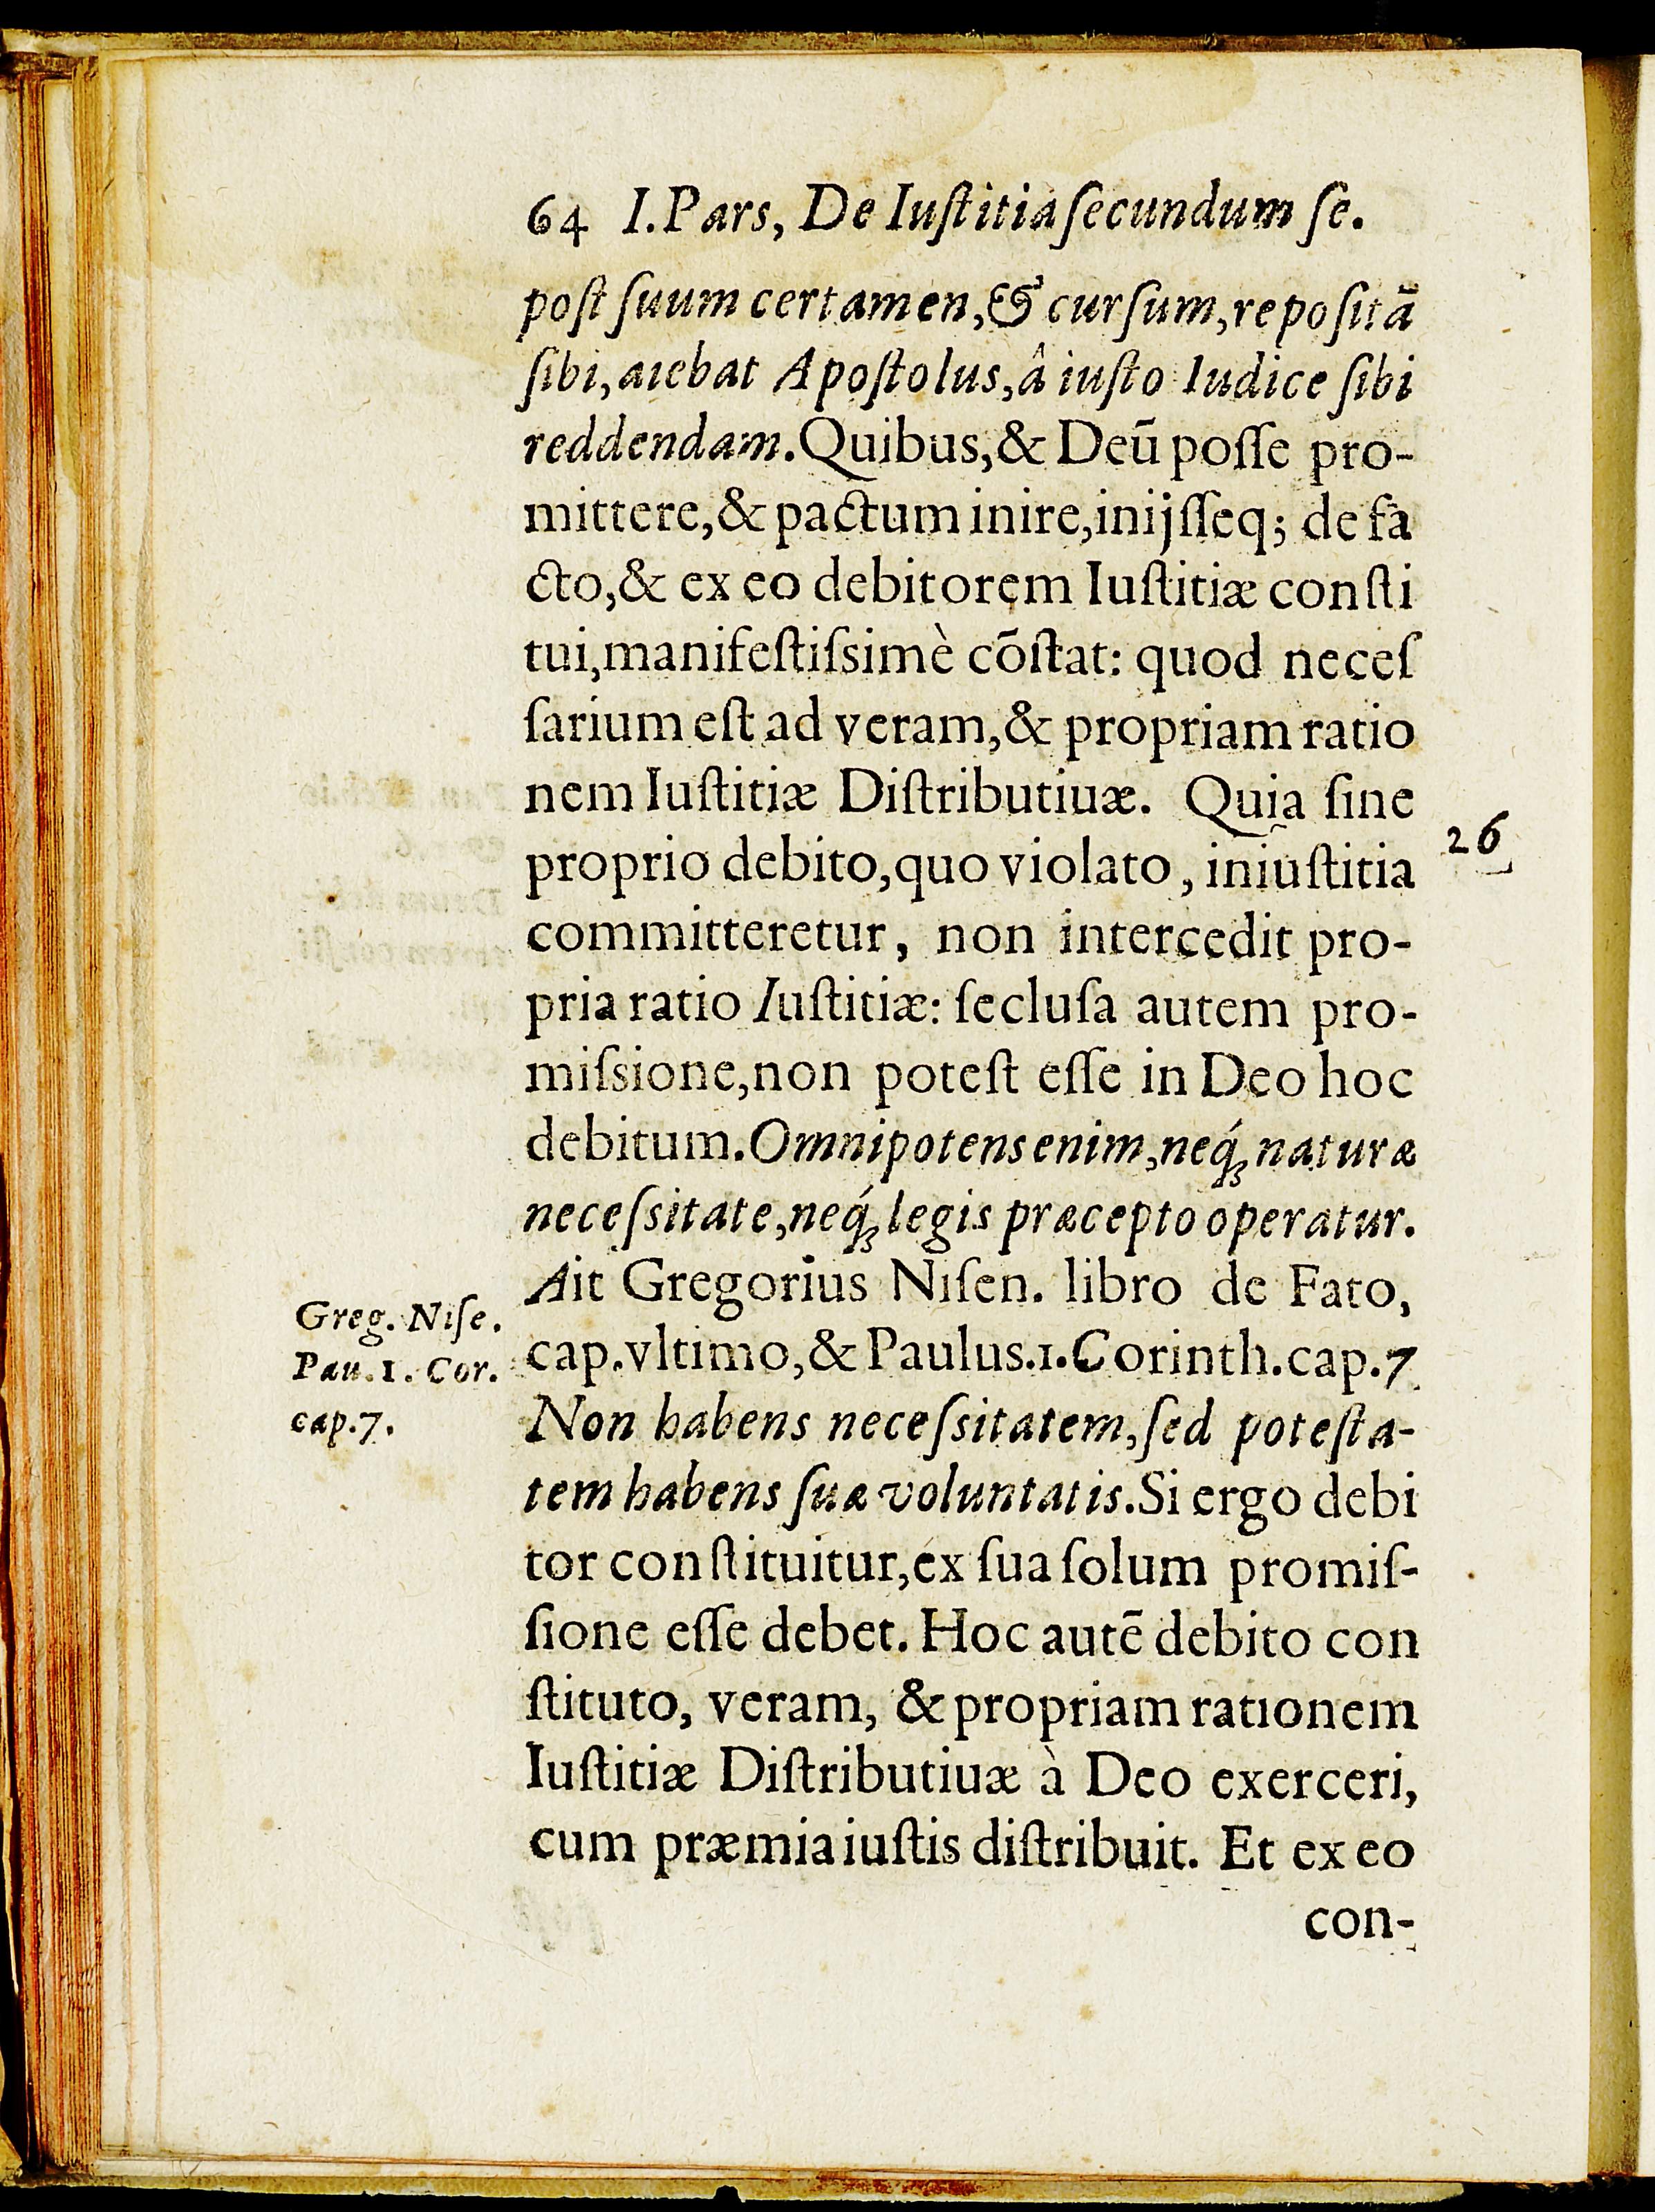 64 I. Pars, De Iuſtitia ſecundum ſe.
poſt ſuum certamen, & curſum, repoſitā
ſibi, aiebat Apoſtolus, â iuſto Iudice ſibi
reddendam. Quibus, & Deū poſſe pro-
mittere, & pactum inire, inijſſeq; de fa
cto, & ex eo debitorem Iuſtitiæ conſti
tui, manifeſtiſsimè cōſtat: quod neceſ
ſarium eſt ad veram, & propriam ratio
nem Iuſtitiæ Diſtributiuæ. Quia ſine
26
proprio debito, quo violato, iniuſtitia
committeretur, non intercedit pro-
pria ratio Iuſtitiæ: ſecluſa autem pro-
miſsione, non poteſt eſſe in Deo hoc
debitum. Omnipotens enim, neq́ꝫ naturæ
neceſsitate, neq́ꝫ legis præcepto operatur.
Ait Gregorius Niſen. libro de Fato,
Greg. Niſe.
cap. vltimo, & Paulus. 1. Corinth. cap. 7
Pau. 1. Cor.
Non habens neceſsitatem, ſed poteſta-
cap. 7.
tem habens ſuæ voluntatis. Si ergo debi
tor conſtituitur, ex ſua ſolum promiſ-
ſione eſſe debet. Hoc autē debito con
ſtituto, veram, & propriam rationem
Iuſtitiæ Diſtributiuæ à Deo exerceri,
cum præmia iuſtis diſtribuit. Et ex eo
con-